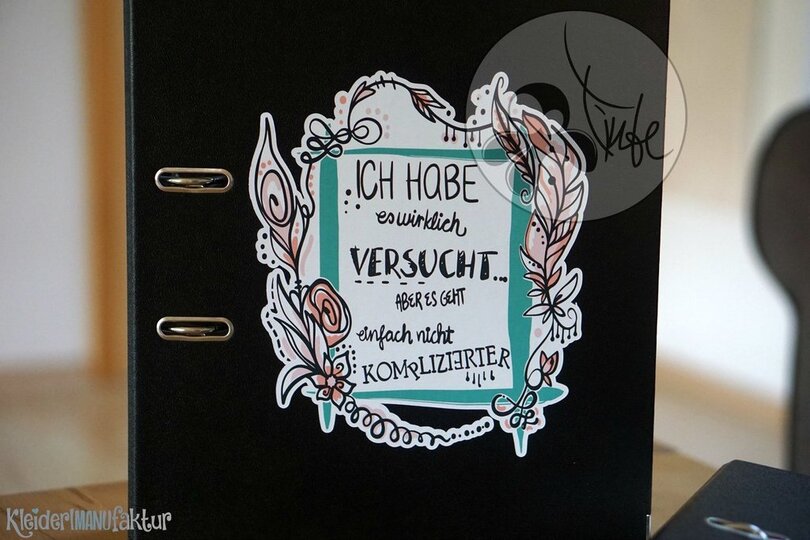 ICH HABE
es wirklich
VERSUCHT...
ABER ES GEHT
einfach nicht
KOMPLIZIERTER
Kleider MANUfaktur